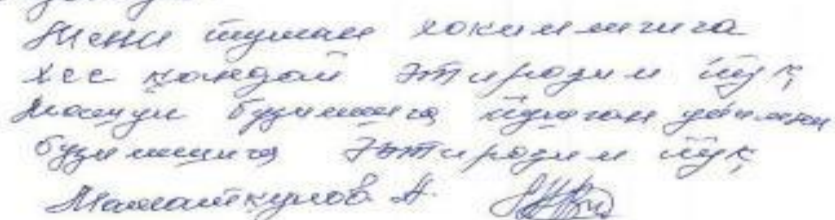 Мени туман хокимлигига
хеч қандай эътирозим йўқ
Мазкур бузилишга тушган уйимни
бузилишига эътирозим йўқ
Маматкулов А.